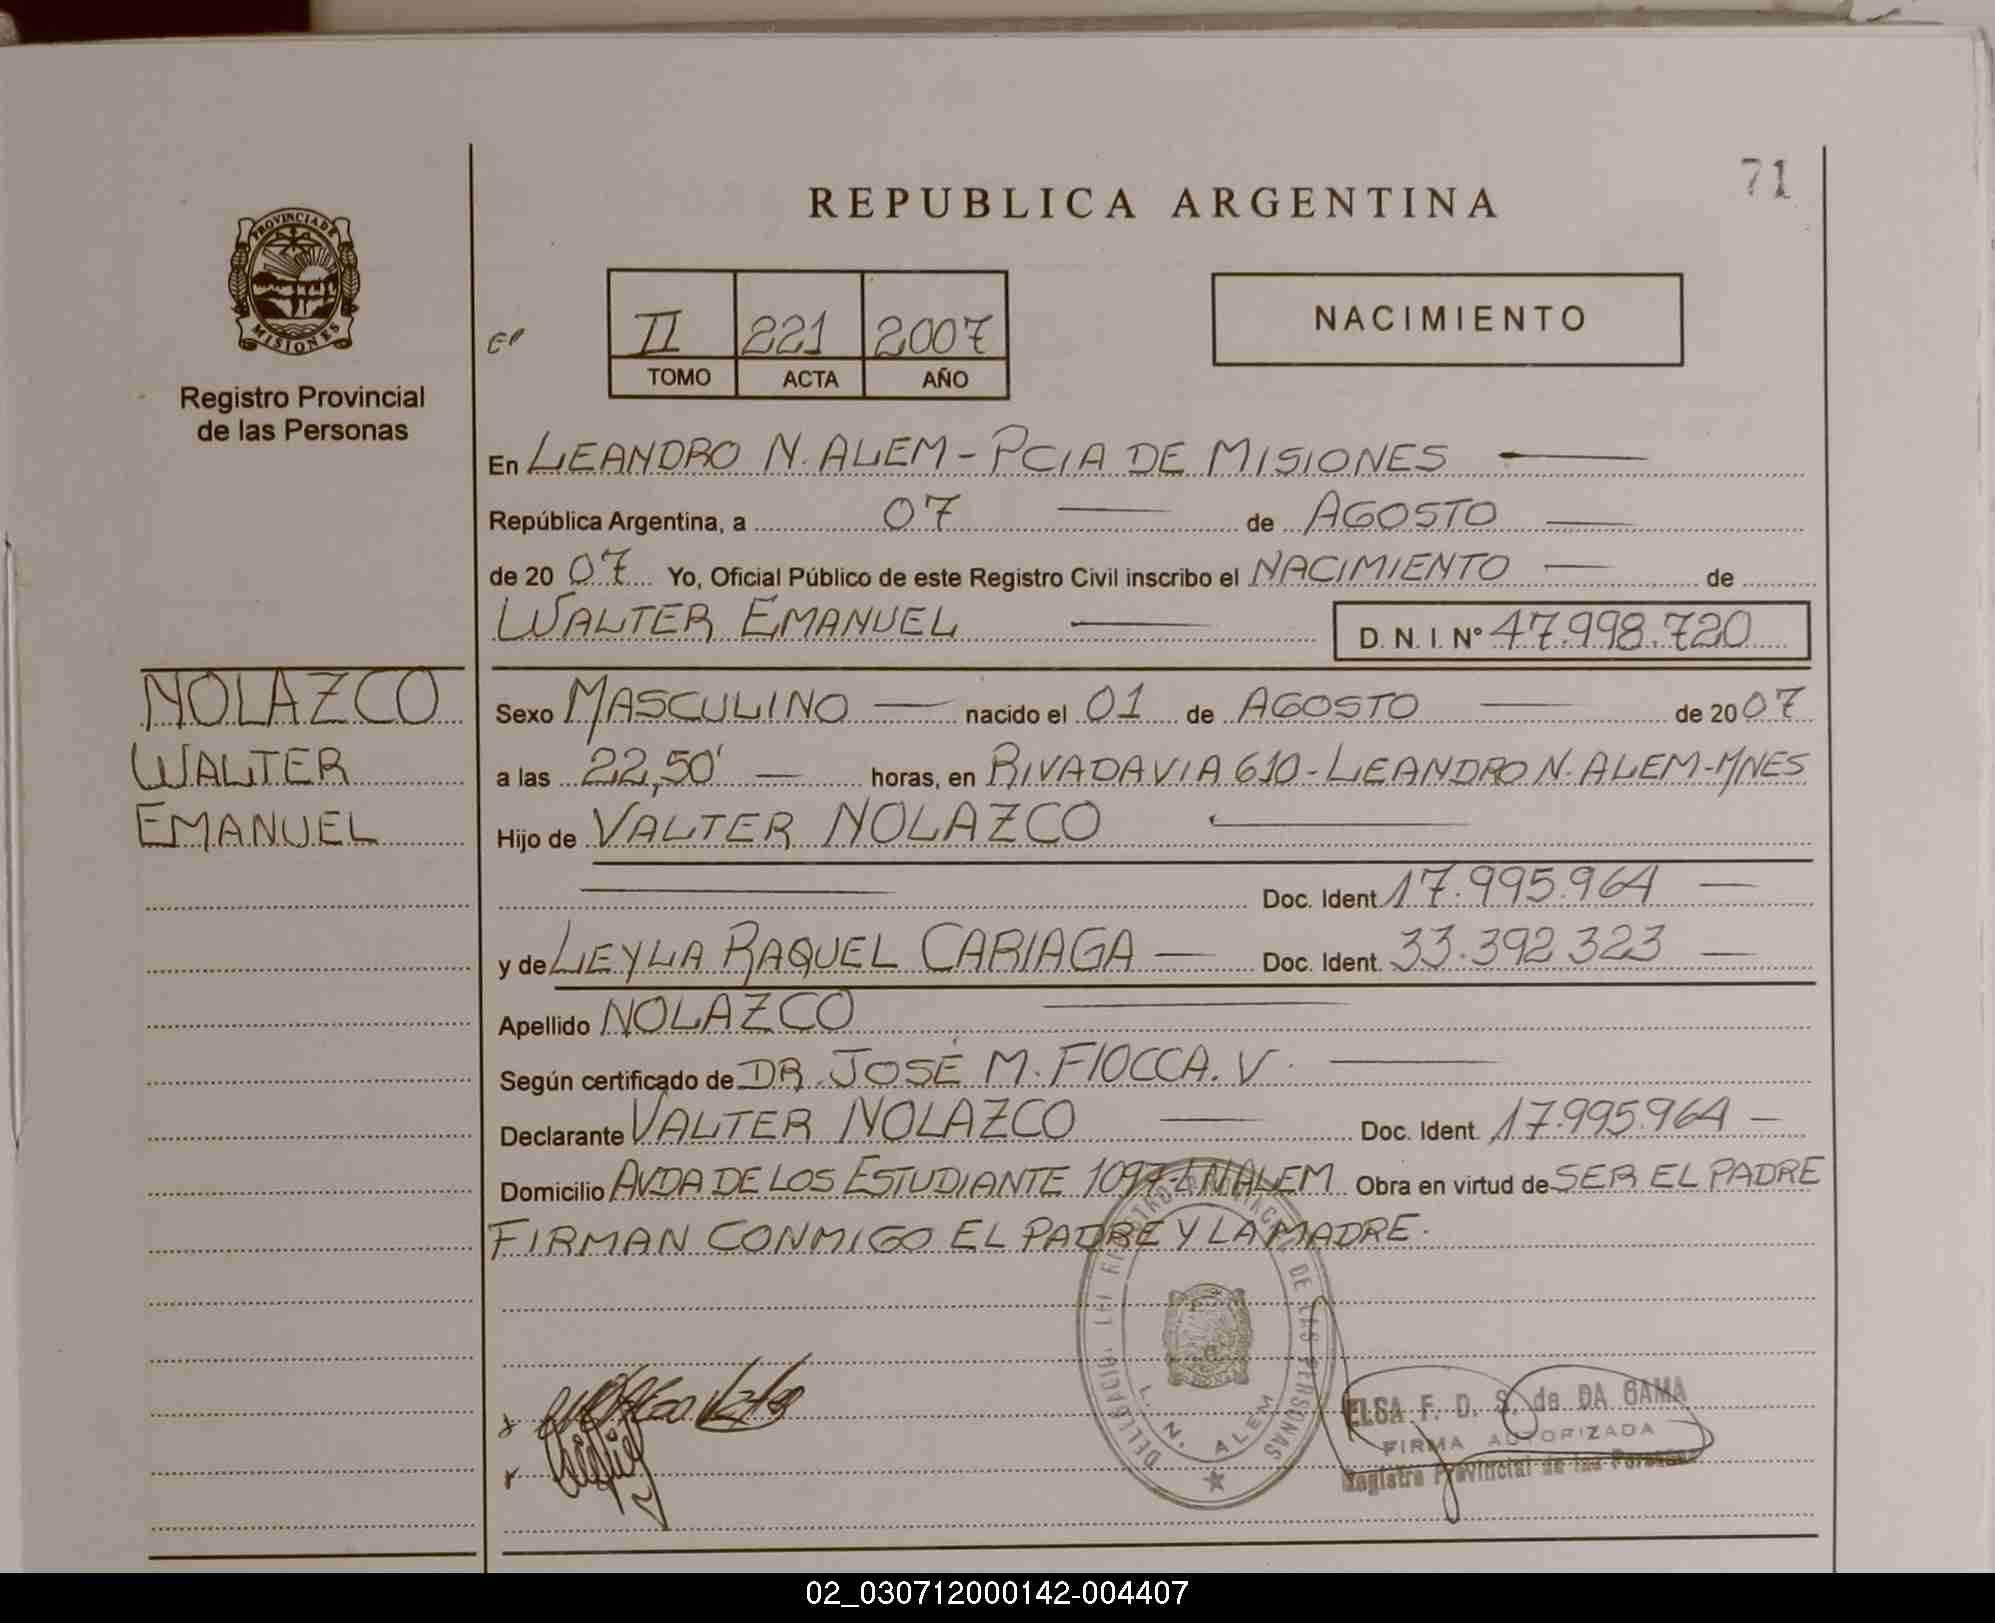 71
REPUBLICA ARGENTINA
PROVINCIA DE
MISIONES
Registro Provincial
de las Personas
II 221 2007
TOMO ACTA AÑO
NACIMIENTO
En LEANDRO N. ALEM - PCIA DE MISIONES
República Argentina, a 07 de AGOSTO
de 20 07 Yo, Oficial Público de este Registro Civil inscribo el NACIMIENTO de
WALTER EMANUEL D. N. I. N° 47.998.720
NOLAZCO
WALTER
EMANUEL
Sexo MASCULINO nacido el 01 de AGOSTO de 20 07
a las 22,50' horas, en RIVADAVIA 610 - LEANDRO N. ALEM - MNES
Hijo de VALTER NOLAZCO
Doc. Ident 17.995.964
y de LEYLA RAQUEL CARIAGA Doc. Ident. 33.392.323
Apellido NOLAZCO
Según certificado de DR. JOSÉ M. FIOCCA. V.
Declarante VALTER NOLAZCO Doc. Ident. 17.995.964
Domicilio AVDA DE LOS ESTUDIANTE 1097-LNALEM Obra en virtud de SER EL PADRE
FIRMAN CONMIGO EL PADRE Y LA MADRE.
DE LAS PERSONAS
L. N. ALEM
ELSA F. D. S. de DA GAMA
FIRMA AUTORIZADA
Registro Provincial de las Personas
02_030712000142-004407